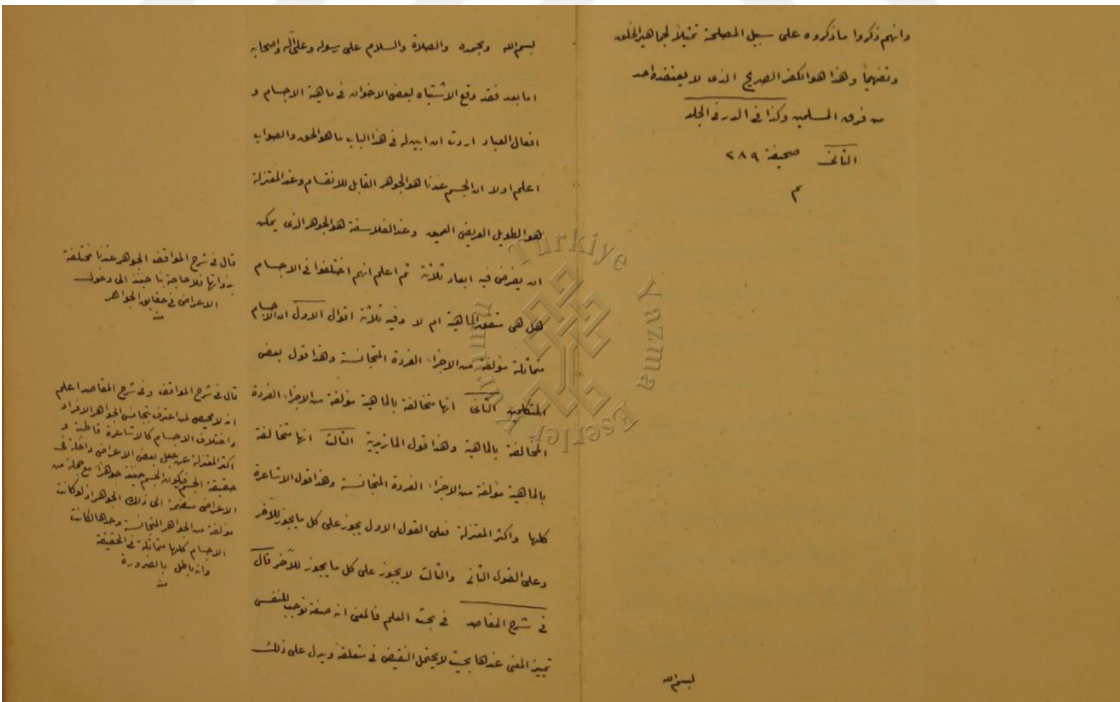 وانهم ذكروا ما ذكروه على سبيل المصلحة تمثيلا لجماهير الخلق
وتفهيما وهذا هو الكفر الصريح الذى لا يعتقده احد
من فرق المسلمين وكذا فى الدر فى الجلد
الثانى صحيفة ٢٨٩
م
بسم الله
بسم الله وبحمده والصلاة والسلام على رسوله وعلى آله واصحابه
اما بعد فقد وقع الاشتباه لبعض الاخوان فى ماهية الاجسام و
افعال العباد اردت ان ابين له فى هذا الباب ما هو الحق والصواب
اعلم اولا ان الجسم عندنا هو الجوهر القابل للانقسام وعند المعتزلة
هو الطويل العريض العميق وعند الفلاسفة هو الجوهر الذى يمكن
ان يفرض فيه ابعاد ثلاثة ثم اعلم انهم اختلفوا فى الاجسام
هل هى متحد الماهية ام لا وفيه ثلاثة اقوال الاول ان الاجسام
متماثلة مؤلفة من الاجزاء الفردة المتجانسة وهذا قول بعض
المتكلمين الثانى انها متخالفة بالماهية مؤلفة من الاجزاء الفردة
المخالفة بالماهية وهذا قول الماتريدية الثالث انها متخالفة
بالماهية مؤلفة من الاجزاء الفردة المتجانسة وهذا قول الاشاعرة
كلها واكثر المعتزلة فعلى القول الاول يجوز على كل ما يجوز للآخر
وعلى القول الثانى والثالث لا يجوز على كل ما يجوز للآخر قال
فى شرح المقاصد فى بحث العلم فالمعنى انه صفة توجب للنفس
تميز المعنى عندها بحيث لا يحتمل النقيض فى متعلقه ويدل على ذلك
قال فى شرح المواقف الجوهر عندنا مختلفة
بذواتها فلا حاجة بنا حينئذ الى دخول
الاعراض فى حقايق الجواهر
قال فى شرح المواقف وفى شرح المقاصد اعلم
انه لا محيص لمن اعترف بتجانس الجواهر الافراد
واختلاف الاجسام كالاشاعرة قاطبة و
اكثر المعتزلة عن جعل بعض الاعراض داخلة فى
حقيقة الجسم فيكون الجسم حينئذ جوهرا مع جملة من
الاعراض منضمة الى ذلك الجوهر اذ لو كانت
مؤلفة من الجواهر المتجانسة وحدها لكانت
الاجسام كلها متماثلة فى الحقيقة
وانه باطل بالضرورة
Türkiye Yazma Eserler Kurumu